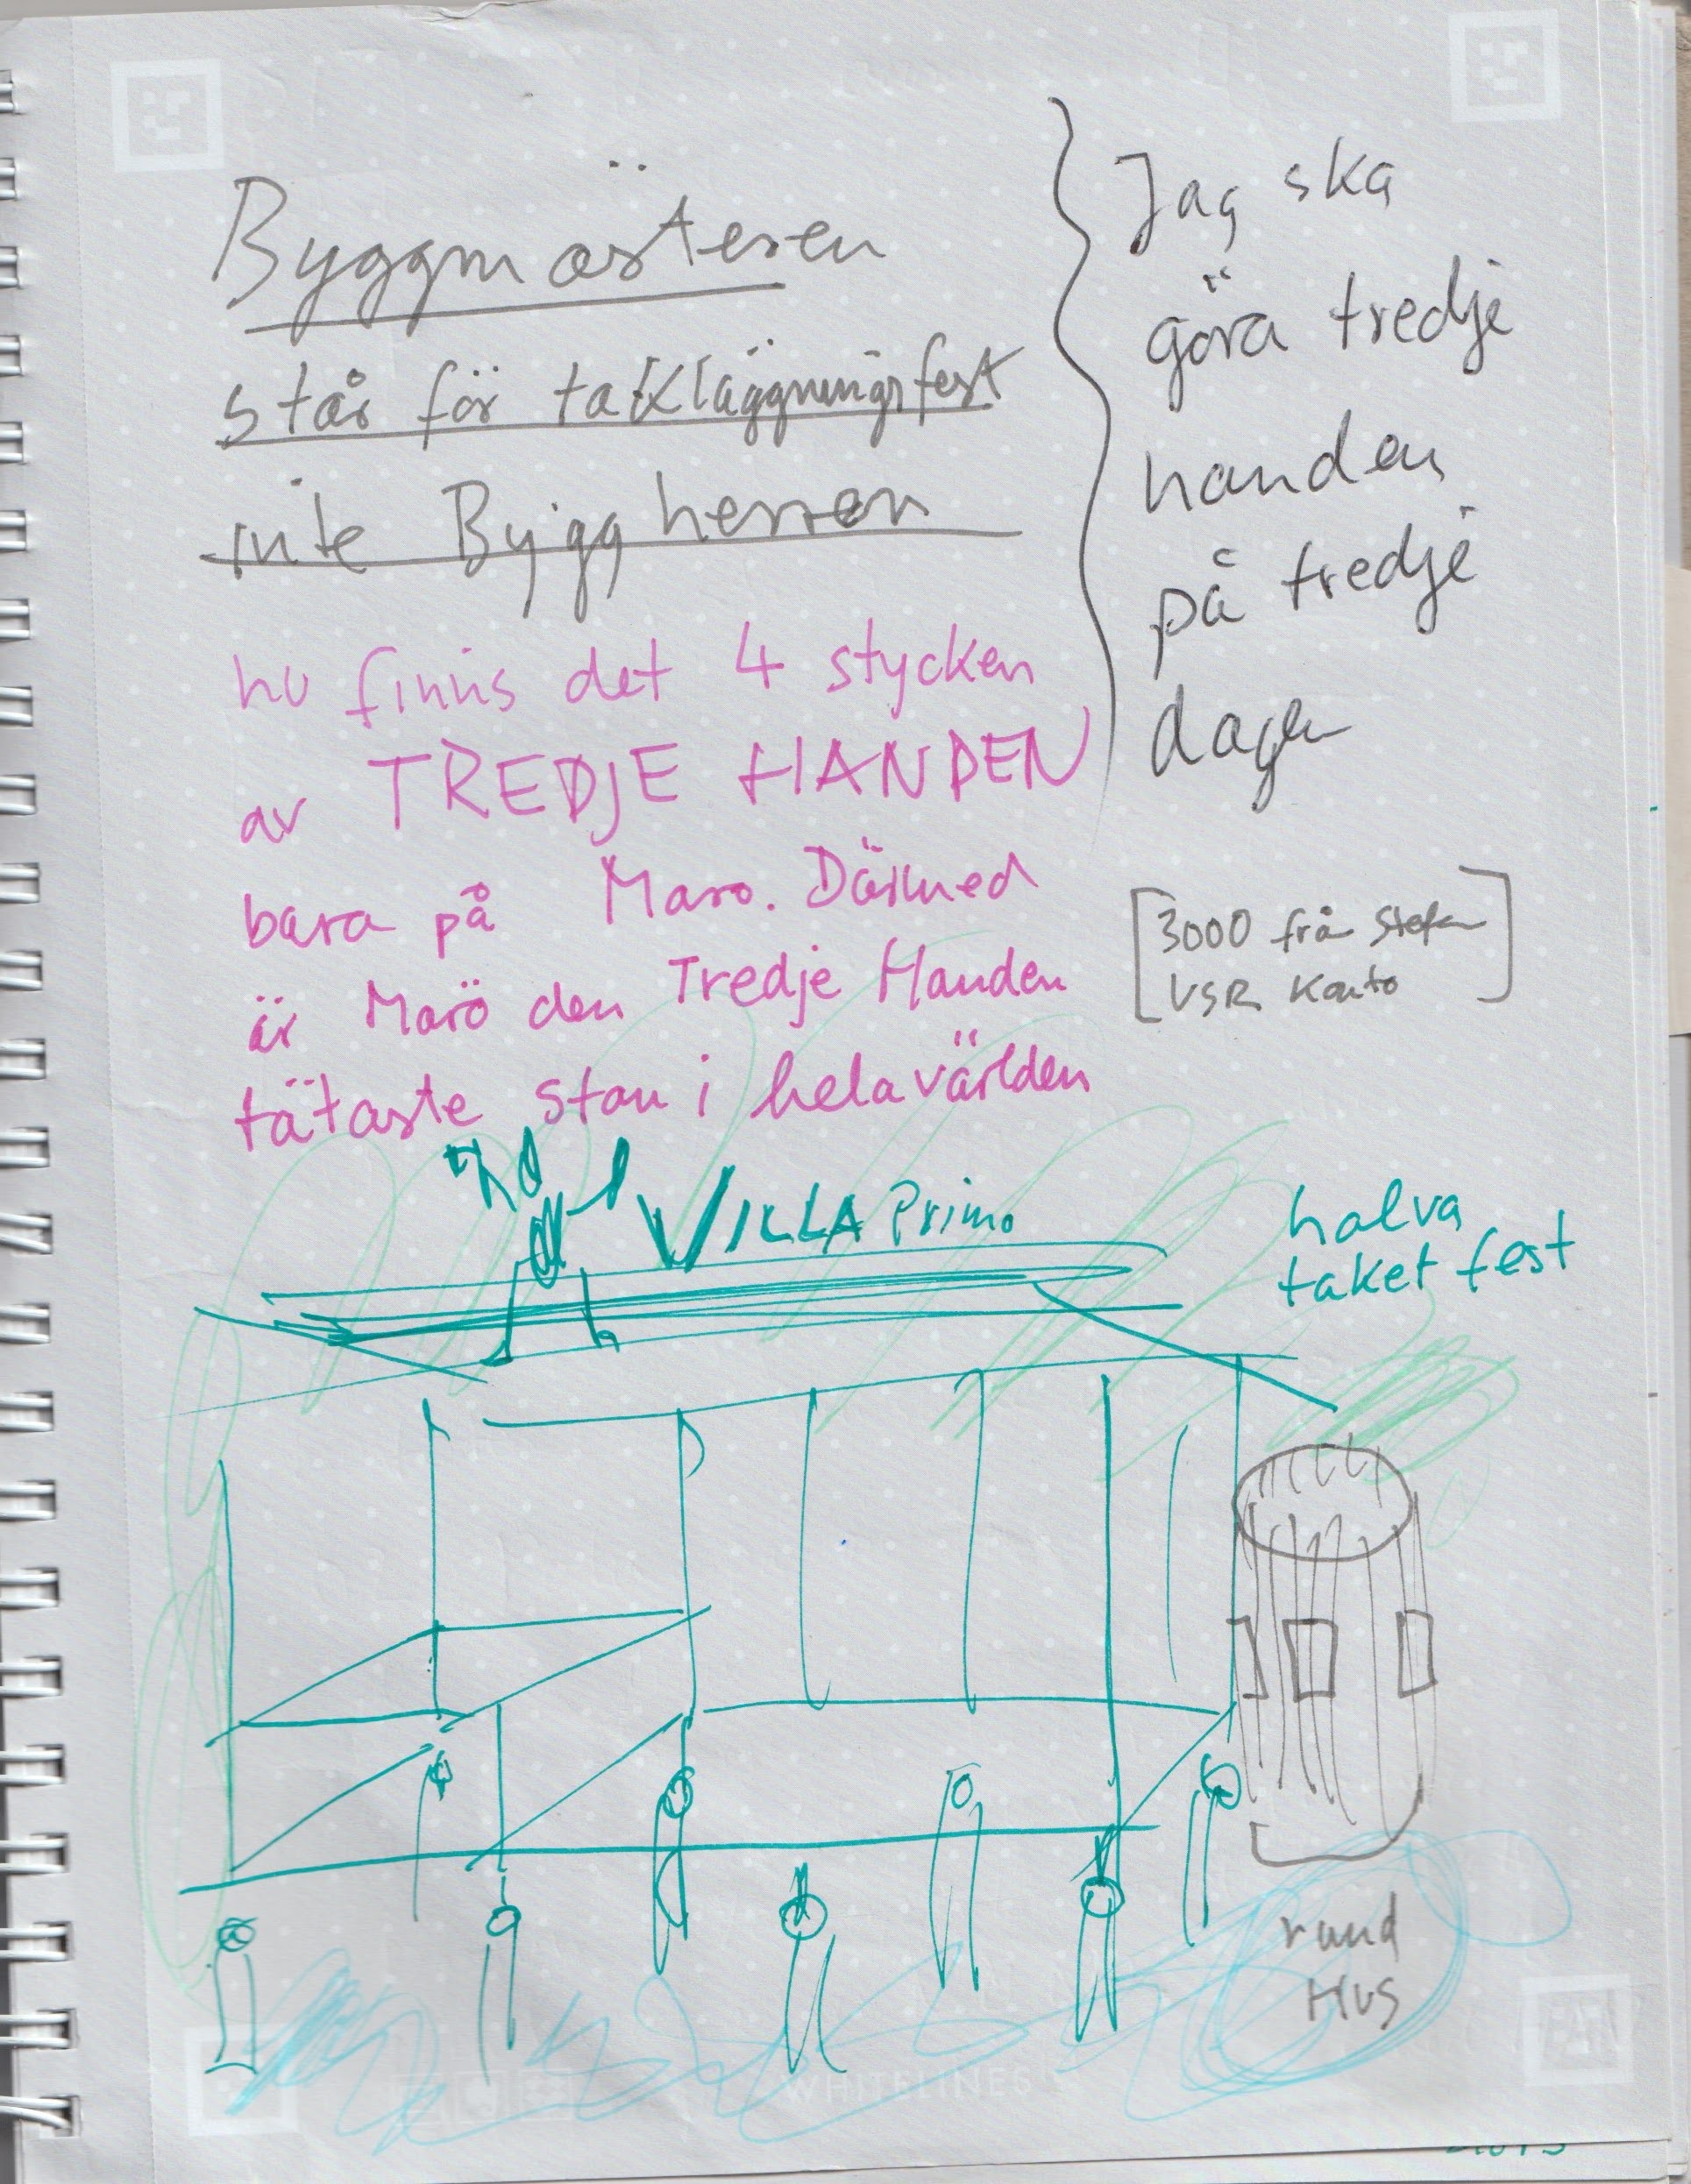 Byggmästeren
står för takläggningsfest
inte Byggherren
Jag ska
göra tredje
handen
på tredje
dagen
nu finns det 4 stycken
av TREDJE HANDEN
bara på Maro. Därmed
är Marö den Tredje Handen
tätaste stan i hela världen
[3000 från Stefan
VSR Konto]
VILLA Primo
halva
taket fest
rund
HUS
WHITELINES